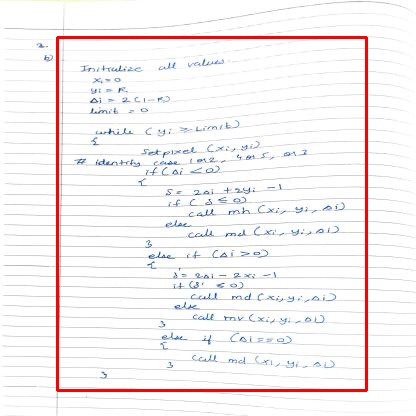 2.
b)
Initialize all values.
xi=0
yi = R
Δi = 2(1-R)
limit = 0
while (yi ≥ Limit)
{
Setpixel (xi, yi)
# identify case 1 or 2, 4 or 5, or 3
if (Δi < 0)
{
δ = 2Δi + 2yi - 1
if (δ ≤ 0)
call mh (xi, yi, Δi)
else
call md (xi, yi, Δi)
}
else if (Δi > 0)
{
δ' = 2Δi - 2xi - 1
if (δ' ≤ 0)
call md (xi, yi, Δi)
else
call mv (xi, yi, Δi)
}
else if (Δi == 0)
{
call md (xi, yi, Δi)
}
}